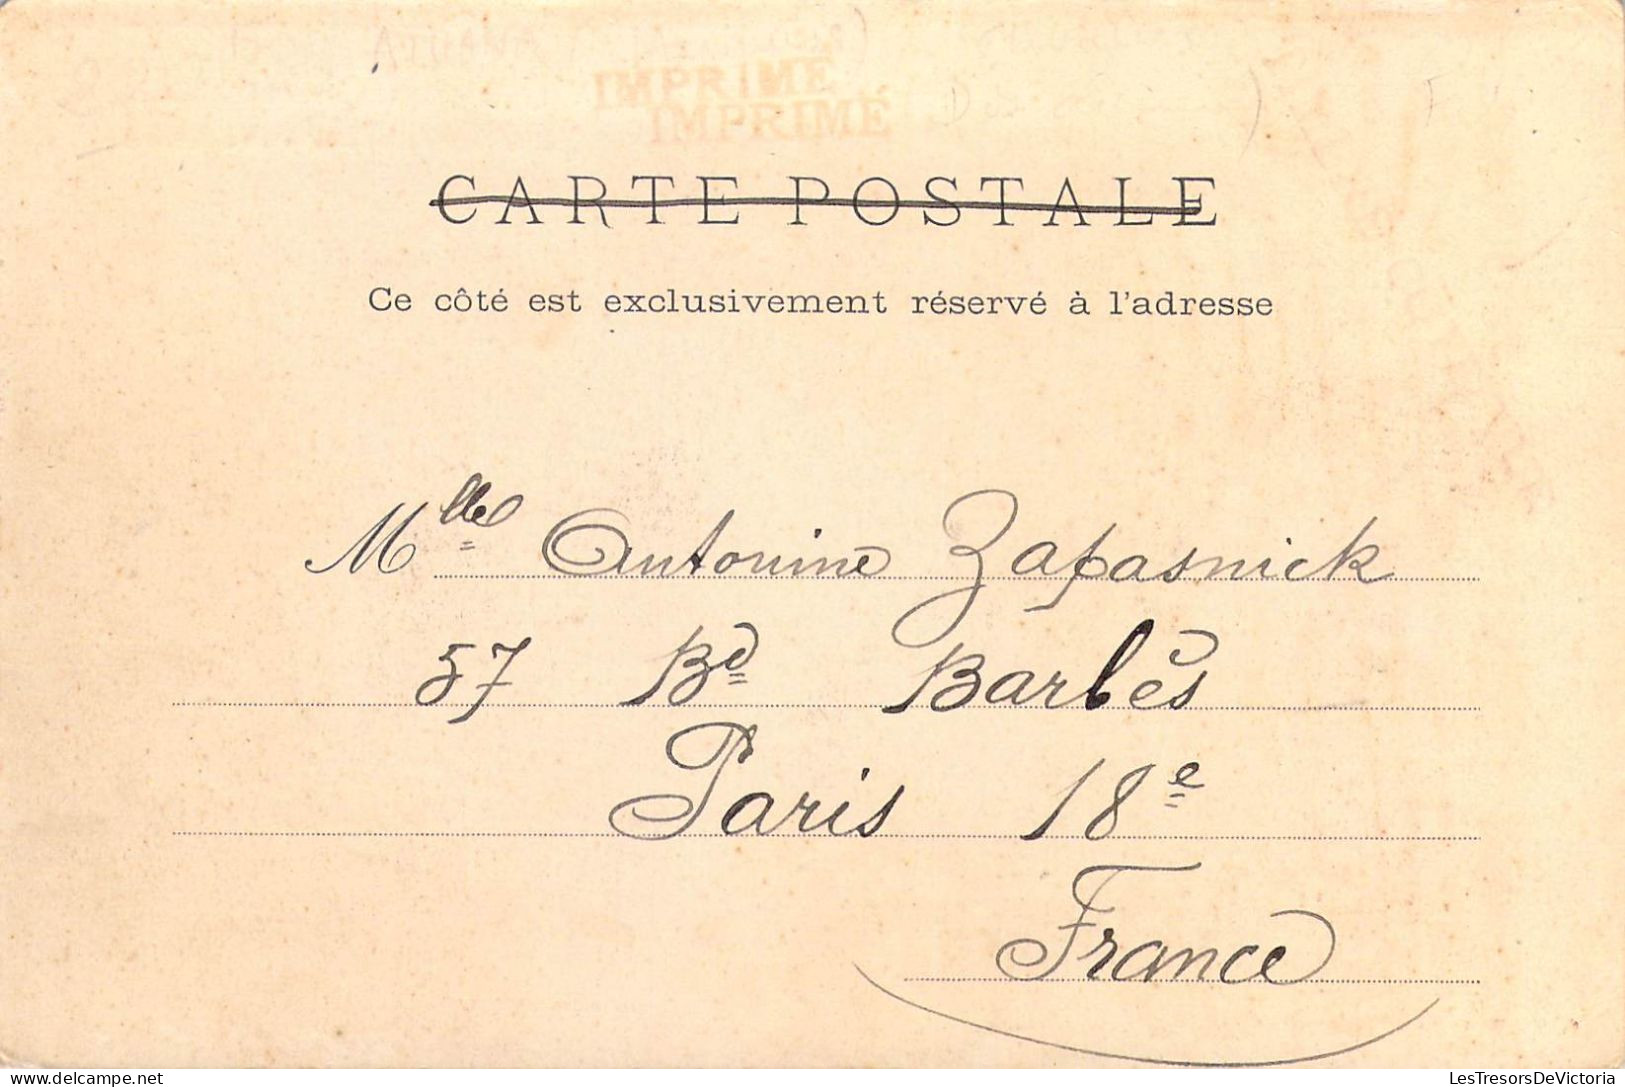 IMPRIMÉ
IMPRIMÉ
CARTE POSTALE
Ce côté est exclusivement réservé à l'adresse
Mlle Antonine Zapasnick
57 Bd Barbès
Paris 18e
France
www.delcampe.net
LesTresorsDeVictoria